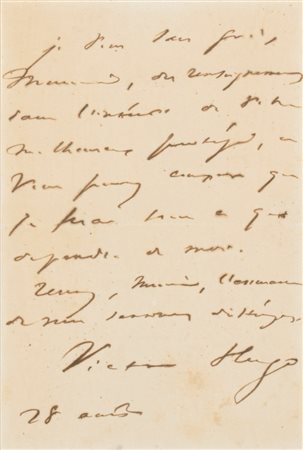 je
Monsieur, des renseignements
dans l'intérêt de votre
malheureux protégé, et
vous pouvez compter que
je ferai tout ce qui
dépendra de moi.
Recevez, Monsieur, l'assurance
de mes sentiments distingués
Victor Hugo
28 août